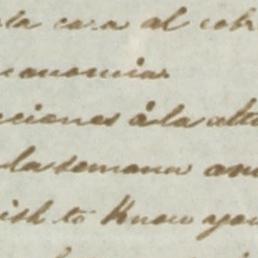 la cara al cobr
conomia.
cciones á la altu
la semana an
ish to Know you